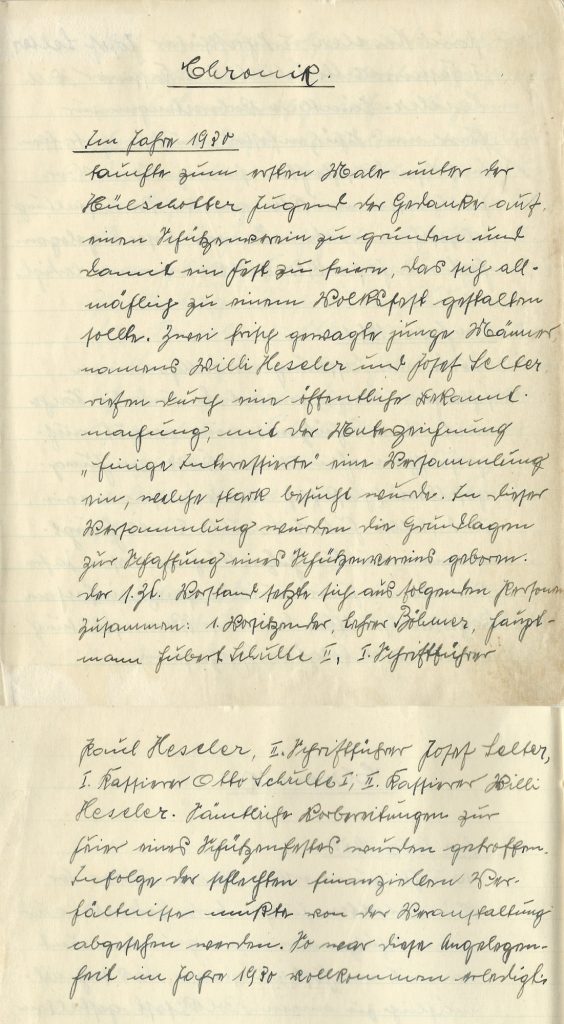 Chronik.
Im Jahre 1930
tauchte zum ersten Male unter der
Hülschotter Jugend der Gedanke auf,
einen Schützenverein zu gründen und
damit ein Fest zu feiern, das sich all-
mählich zu einem Volksfest gestalten
sollte. Zwei frisch gewagte junge Männer,
namens Willi Heseler und Josef Selter
riefen durch eine öffentliche Bekannt-
machung, mit der Unterzeichnung
„Einige Interessierte" eine Versammlung
ein, welche stark besucht wurde. In dieser
Versammlung wurden die Grundlagen
zur Schaffung eines Schützenvereins geboren.
Der z. Zt. Vorstand setzte sich aus folgenden Personen
zusammen: 1. Vorsitzender, Lehrer Böhmer, Haupt-
mann Hubert Schulte II, I. Schriftführer
Paul Heseler, II. Schriftführer Josef Selter,
I. Kassierer Otto Schulte I; II. Kassierer Willi
Heseler. Sämtliche Vorbereitungen zur
Feier eines Schützenfestes wurden getroffen.
Infolge der schlechten finanziellen Ver-
hältnisse mußte von der Veranstaltung
abgesehen werden. So war diese Angelegen-
heit im Jahre 1930 vollkommen erledigt.